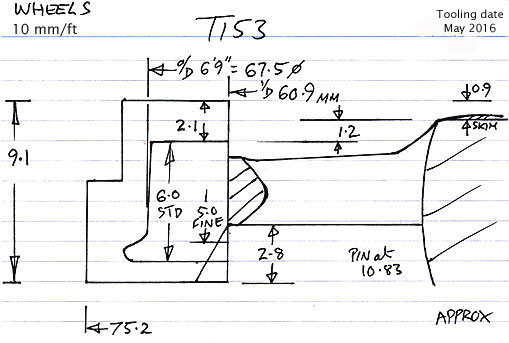 WHEELS
10 mm/ft
T153
Tooling date
May 2016
O/D 6'9" = 67.5 ø
I/D 60.9 MM
0.9
2.1
1.2
SKIM
9.1
6.0
STD
5.0
FINE
2.8
PIN at
10.83
75.2
APPROX